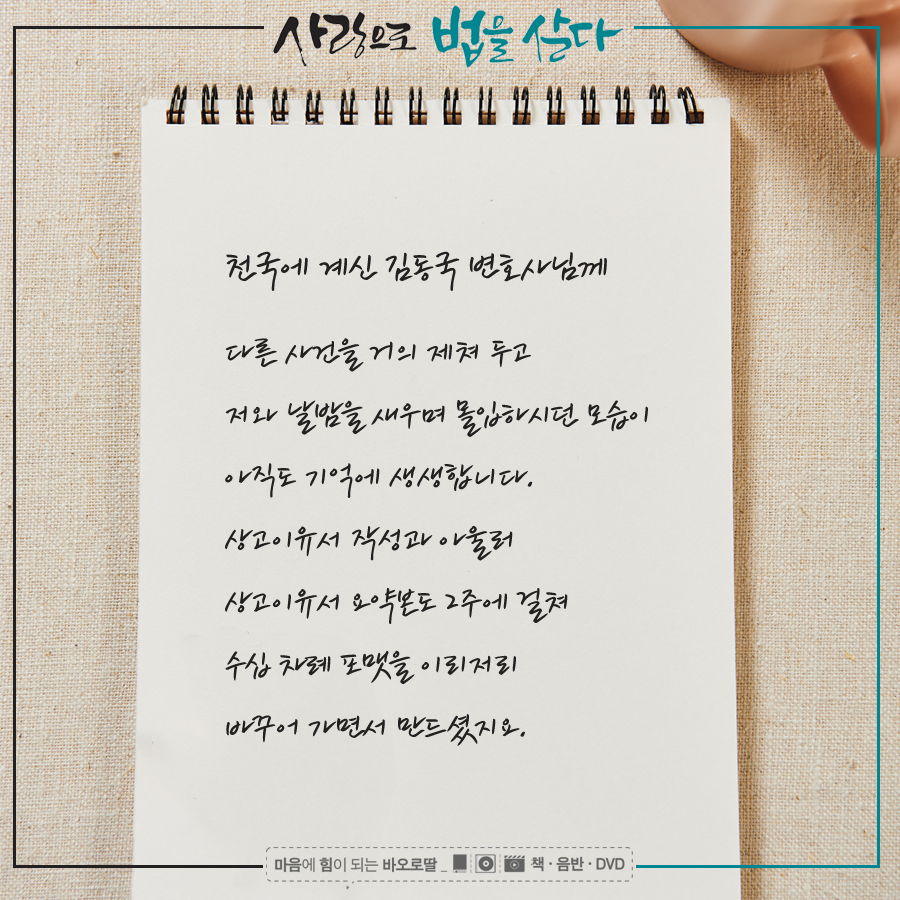 사랑으로 법을 살다
천국에 계신 김동국 변호사님께
다른 사건을 거의 제쳐 두고
저와 날밤을 새우며 몰입하시던 모습이
아직도 기억에 생생합니다.
상고이유서 작성과 아울러
상고이유서 요약본도 2주에 걸쳐
수십 차례 포맷을 이리저리
바꾸어 가면서 만드셨지요.
마음에 힘이 되는 바오로딸 _ 책 · 음반 · DVD